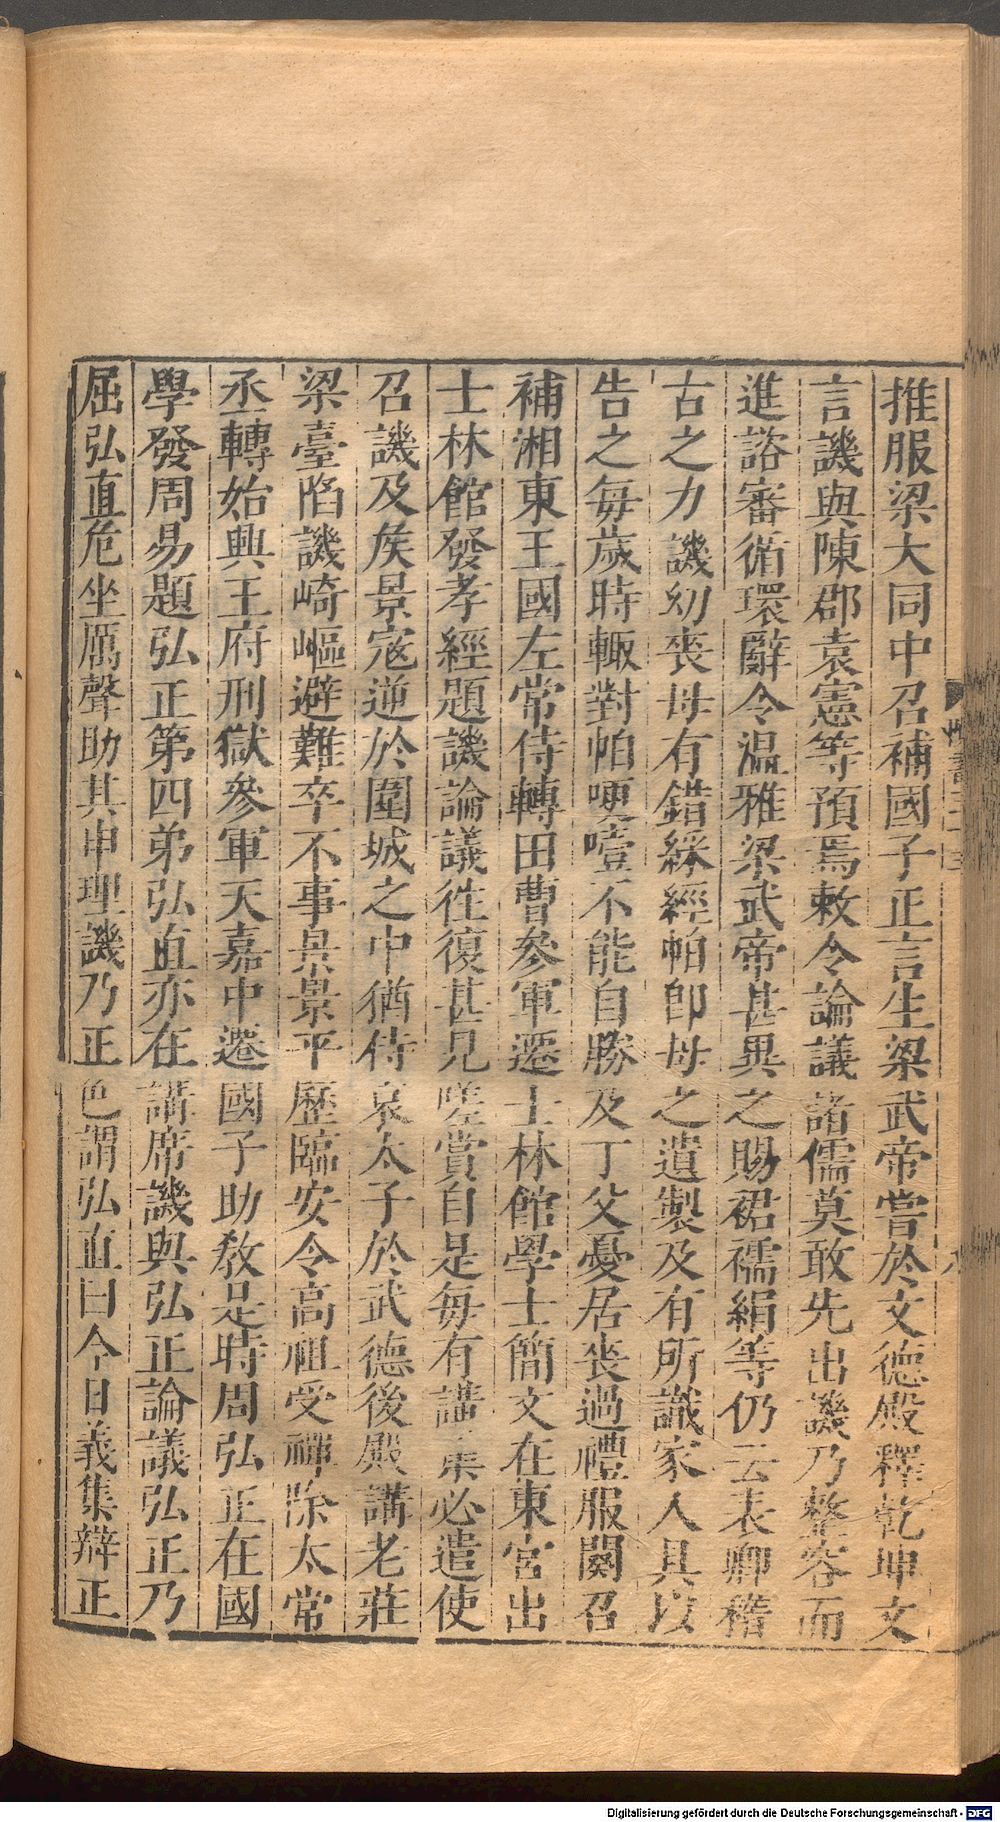 推服梁大同中召補國子正言生梁武帝嘗於文德殿釋乾坤文
言譏與陳郡袁憲等預焉敕令論議諸儒莫敢先出譏乃整容而
進諮審循環辭令温雅梁武帝甚異之賜裙襦絹等仍云表卿稽
古之力譏幼喪母有錯綵經帕即母之遺製及有所識家人具以
告之每歲時輙對帕哽噎不能自勝及丁父憂居喪過禮服闋召
補湘東王國左常侍轉田曹參軍遷士林館學士簡文在東宮出
士林館發孝經題譏論議徃復甚見嗟賞自是每有講集必遣使
召譏及侯景宼逆於圍城之中猶侍哀太子於武德後殿講老莊
梁臺陷譏崎嶇避難卒不事景景平歷臨安令高祖受禪除太常
丞轉始興王府刑獄參軍天嘉中遷國子助教是時周弘正在國
學發周易題弘正第四弟弘直亦在講席譏與弘正論議弘正乃
屈弘直危坐厲聲助其申理譏乃正色謂弘直曰今日義集辯正
Digitalisierung gefördert durch die Deutsche Forschungsgemeinschaft - DFG